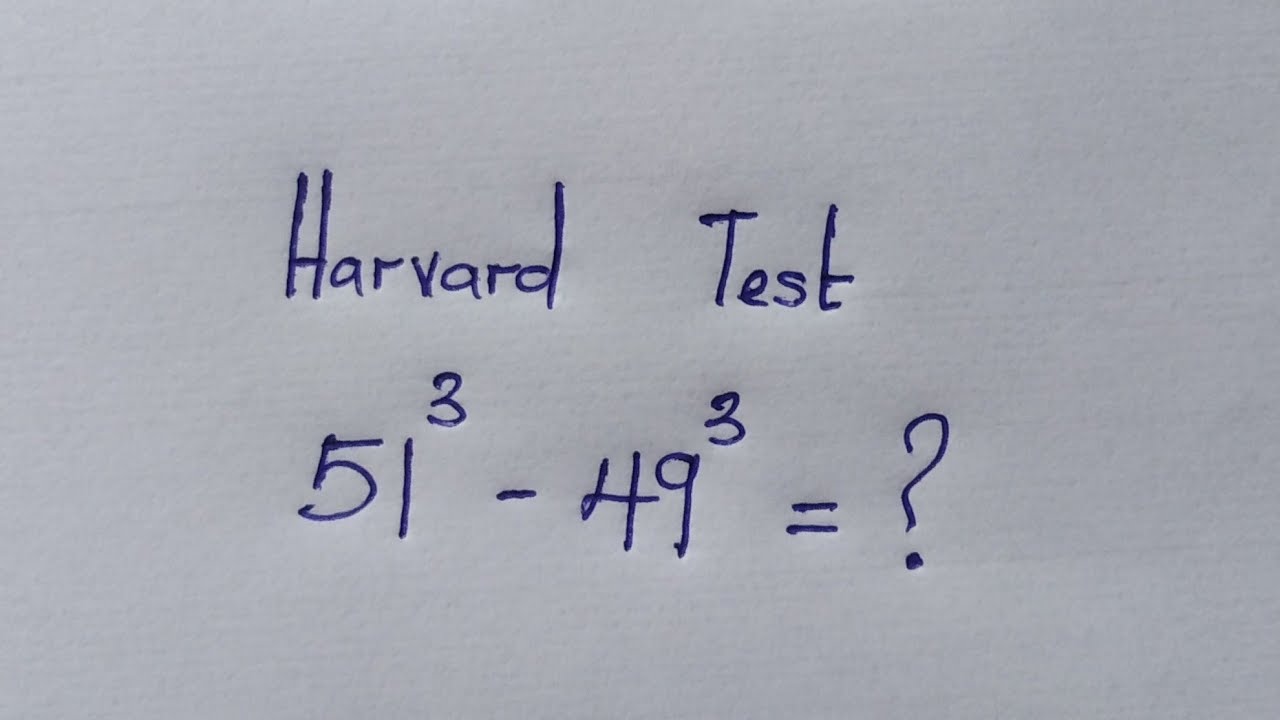 Harvard Test
51³ - 49³ = ?